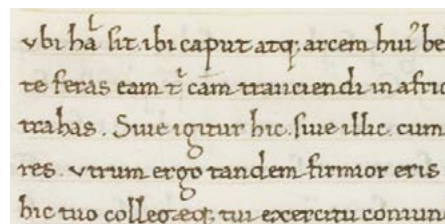 vbi hāł sit ibi caput atq; arcem hui᾽ be
te feras eam t̄ cām tranciendi in afric
trahas . Siue igitur hic . siue illic cum
res . vtrum ergo tandem firmior eris
hic tuo collegæq; tui exercitu coniun